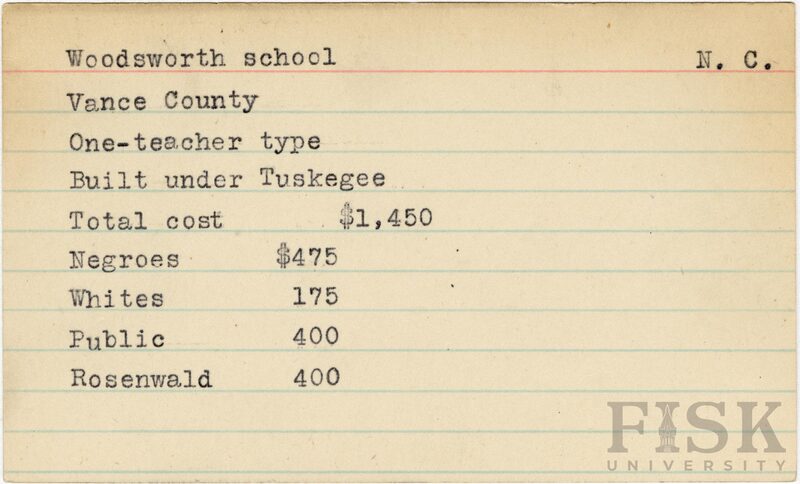 Woodsworth school N. C.
Vance County
One-teacher type
Built under Tuskegee
Total cost $1,450
Negroes $475
Whites 175
Public 400
Rosenwald 400
FISK
UNIVERSITY